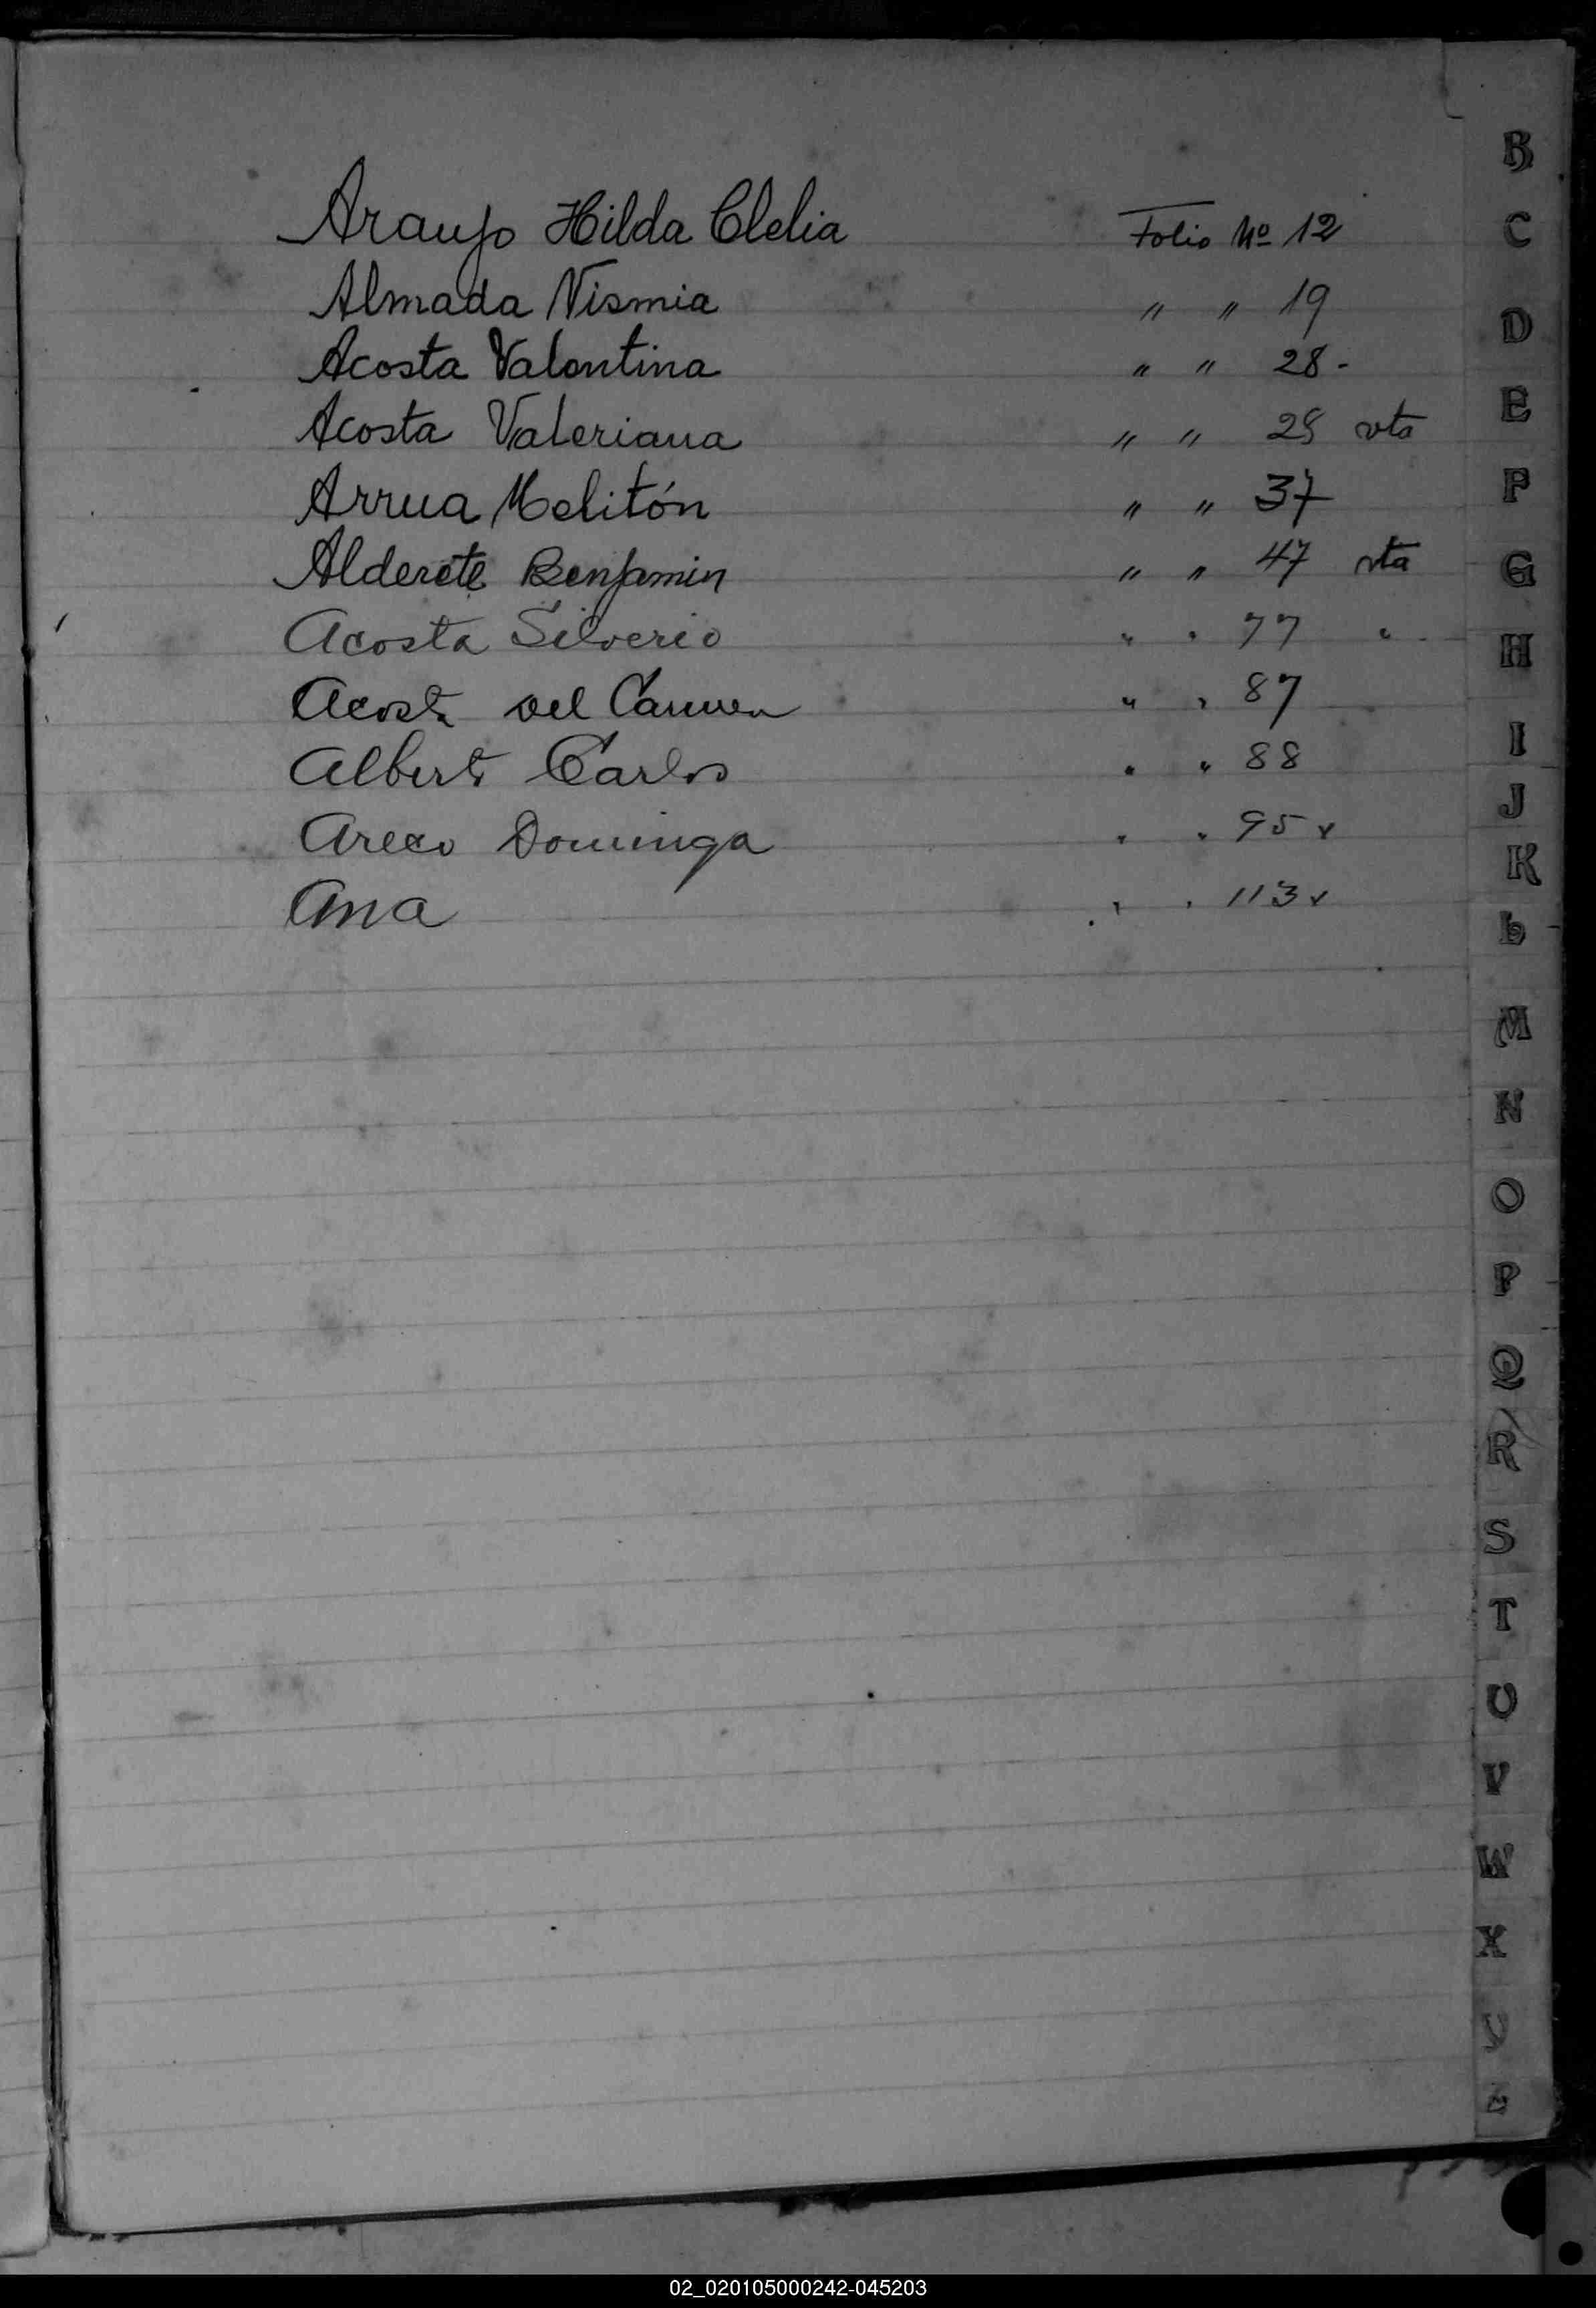 Araujo Hilda Clelia Folio Nº 12
Almada Nismia " " 19
Acosta Valentina " " 28 -
Acosta Valeriana " " 28 vta
Arrua Melitón " " 37
Alderete Benjamin " " 47 vta
Acosta Silverio " " 77 "
Acosta del Carmen " " 87
Alberto Carlos " " 88
Areco Dominga " " 95 v
Ana " " 113 v
B
C
D
E
F
G
H
I
J
K
L
M
N
O
P
Q
R
S
T
U
V
W
X
02_020105000242-045203